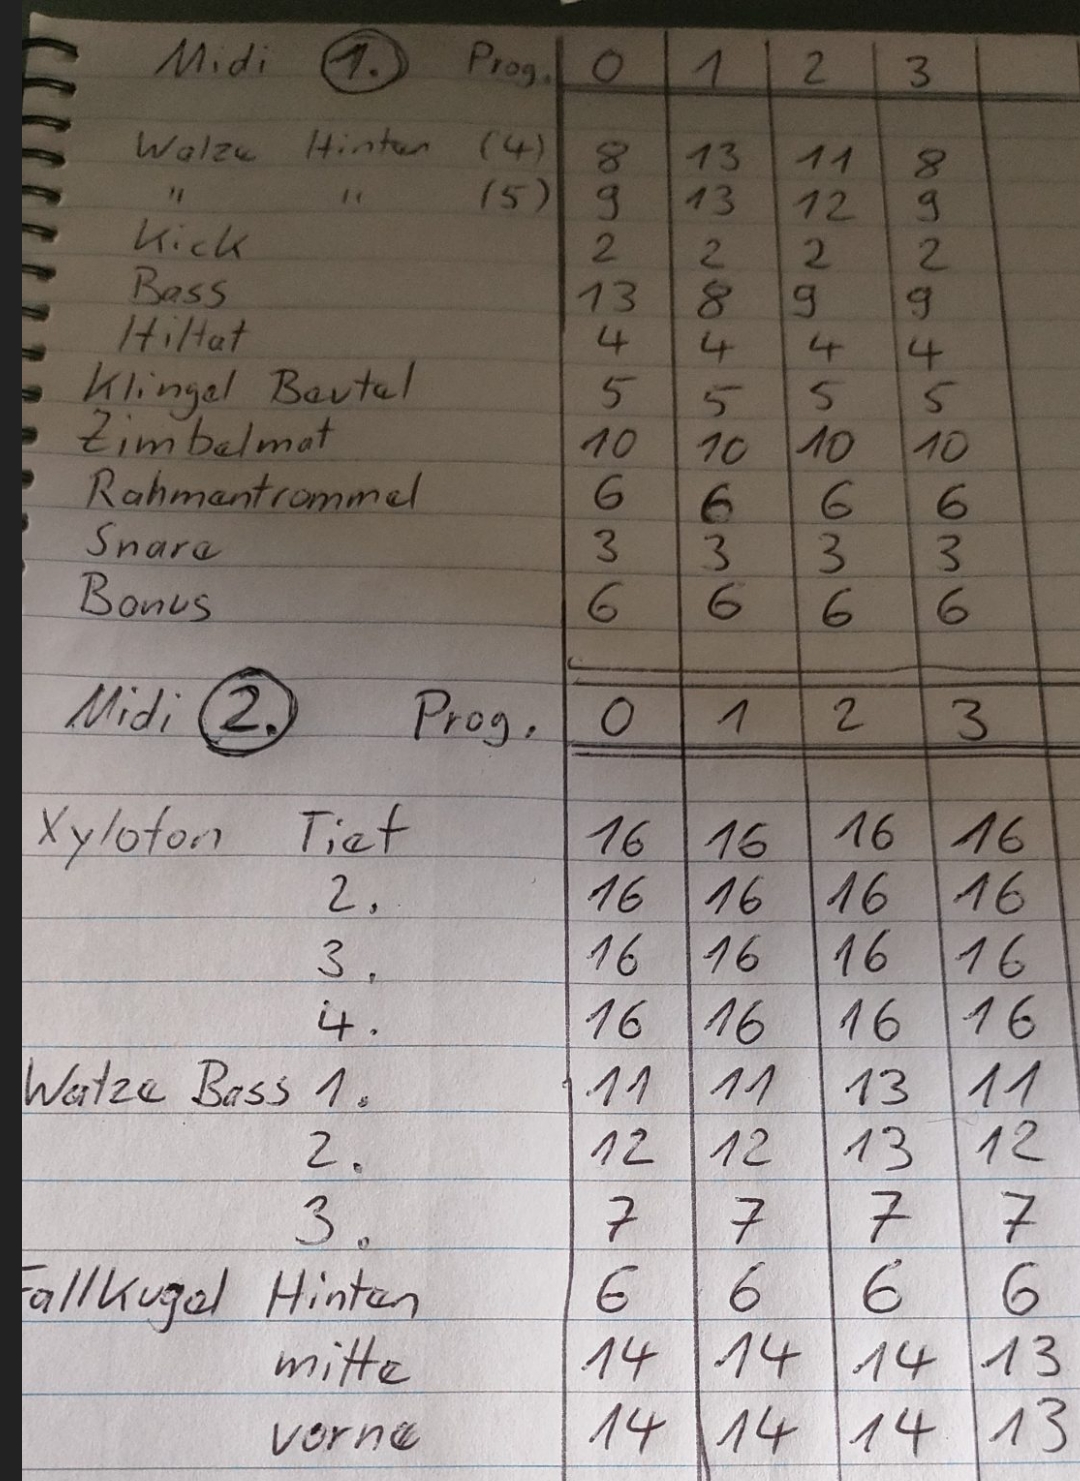 Midi 1. Prog. 0 1 2 3
Walze Hinten (4) 8 13 11 8
" " (5) 9 13 12 9
Kick 2 2 2 2
Bass 13 8 9 9
HiHat 4 4 4 4
Klingel Beutel 5 5 5 5
Zimbelmat 10 10 10 10
Rahmentrommel 6 6 6 6
Snare 3 3 3 3
Bonus 6 6 6 6
Midi 2. Prog. 0 1 2 3
Xylofon Tief 16 16 16 16
2. 16 16 16 16
3. 16 16 16 16
4. 16 16 16 16
Walze Bass 1. 11 11 13 11
2. 12 12 13 12
3. 7 7 7 7
Fallkugel Hinten 6 6 6 6
mitte 14 14 14 13
vorne 14 14 14 13